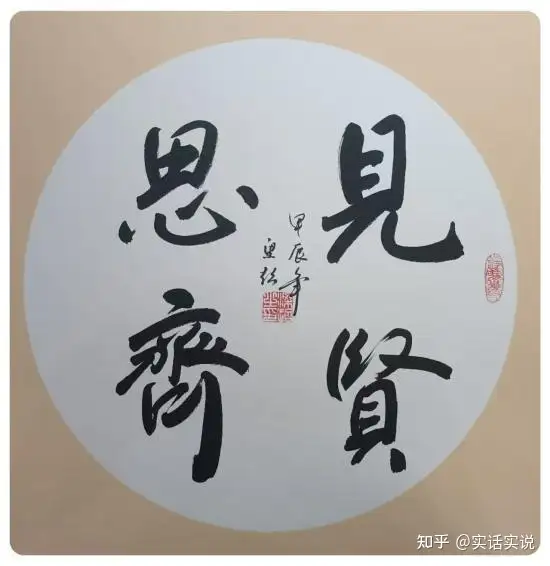 見賢
思齊
甲辰年
知乎 @实话实说